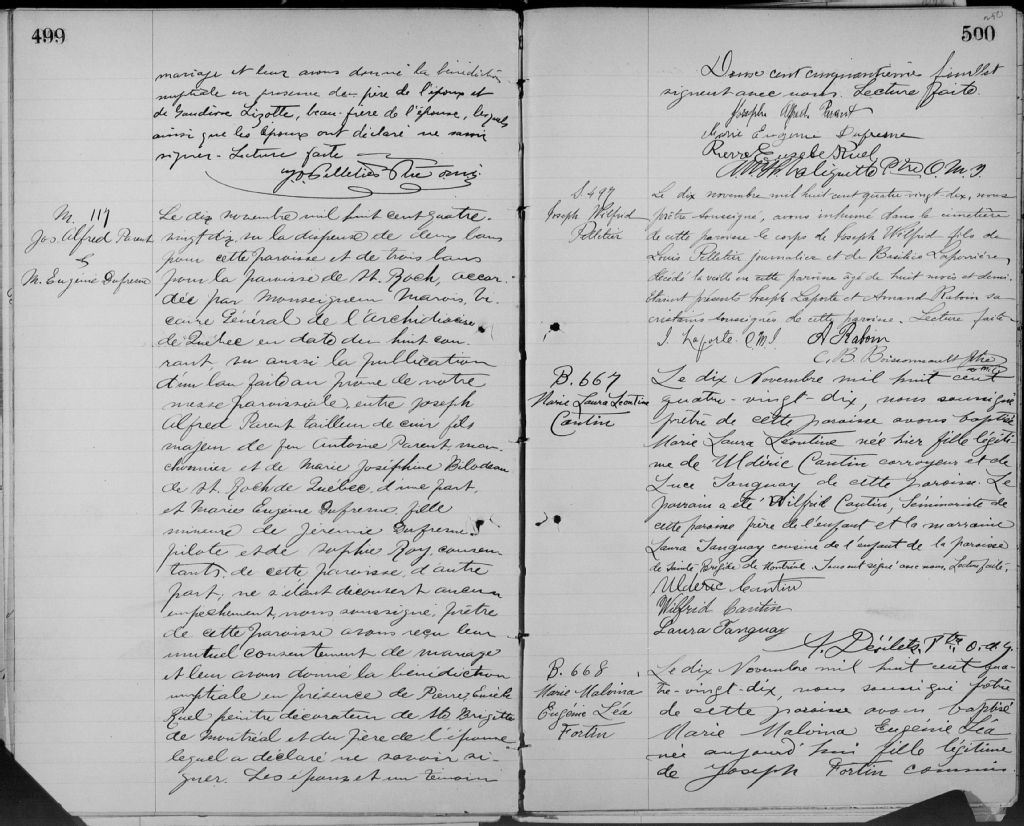 499
mariage et leur avons donné la bénédiction
nuptiale en présence du père de l'époux et
de Gaudiose Lizotte, beau-frère de l'épouse, lesquels
ainsi que les époux ont déclaré ne savoir
signer. Lecture faite
Pelletier Ptre
M. 117
Jos Alfred Parent
&
M. Eugénie Dufresne
Le dix novembre mil huit cent quatre-
vingt dix, vu la dispense de deux bans
pour cette paroisse et de trois bans
pour la paroisse de St. Roch, accor-
dée par Monseigneur Marois, Vi-
caire Général de l'archidiocèse
de Québec en date du huit cou-
rant vu aussi la publication
d'un ban faite au prône de notre
messe paroissiale, entre Joseph
Alfred Parent tailleur de cuir fils
majeur de feu Antoine Parent
et de Marie Joséphine Bilodeau
de St. Roch de Québec, d'une part,
et Marie Eugénie Dufresne, fille
mineure de Jérémie Dufresne
pilote et de Sophie Roy, consen-
tants, de cette paroisse, d'autre
part; ne s'étant découvert aucun
empêchement, nous soussigné, prêtre
de cette paroisse avons reçu leur
mutuel consentement de mariage
et leur avons donné la bénédiction
nuptiale en présence de Pierre Eusèbe
Ruel peintre décorateur de Ste Brigitte
de Montréal et du père de l'épouse
lequel a déclaré ne savoir si-
gner. Les époux et un témoin
500
250
Deux cent cinquantième feuillet
signent avec nous. Lecture faite.
Joseph Alfred Parent
Marie Eugénie Dufresne
Pierre Eusèbe Ruel
Valiquette Ptre O.M.I.
S. 497
Joseph Wilfrid
Pelletier
Le dix novembre mil huit cent quatre vingt dix, nous
prêtre soussigné, avons inhumé dans le cimetière
de cette paroisse le corps de Joseph Wilfrid fils de
Louis Pelletier journalier et de Laperrière,
décédé la veille en cette paroisse âgé de huit mois et demi.
Étaient présents Joseph Laporte et Amand Rabouin sa-
cristains soussignés de cette paroisse. Lecture faite
J. Laporte O.M.I. A Rabouin
C. B. Boissonnault Ptre
o.m.i.
B. 667
Marie Laura Léontine
Cantin
Le dix Novembre mil huit cent
quatre-vingt dix, nous soussigné
prêtre de cette paroisse avons baptisé
Marie Laura Léontine née hier fille légiti-
me de Uldéric Cantin corroyeur et de
Luce Tanguay de cette paroisse. Le
parrain a été Wilfrid Cantin, Séminariste de
cette paroisse frère de l'enfant et la marraine
Laura Tanguay cousine de l'enfant de la paroisse
de Sainte Brigite de Montréal. Tous ont signé avec nous. Lecture faite.
Uldéric Cantin
Wilfrid Cantin
Laura Tanguay
Ptre O.M.I.
B. 668
Marie Malvina
Eugénie Léa
Fortin
Le dix Novembre mil huit cent qua-
tre-vingt-dix, nous soussigné prêtre
de cette paroisse avons baptisé
Marie Malvina Eugénie Léa
née aujourd'hui fille légitime
de Joseph Fortin commis